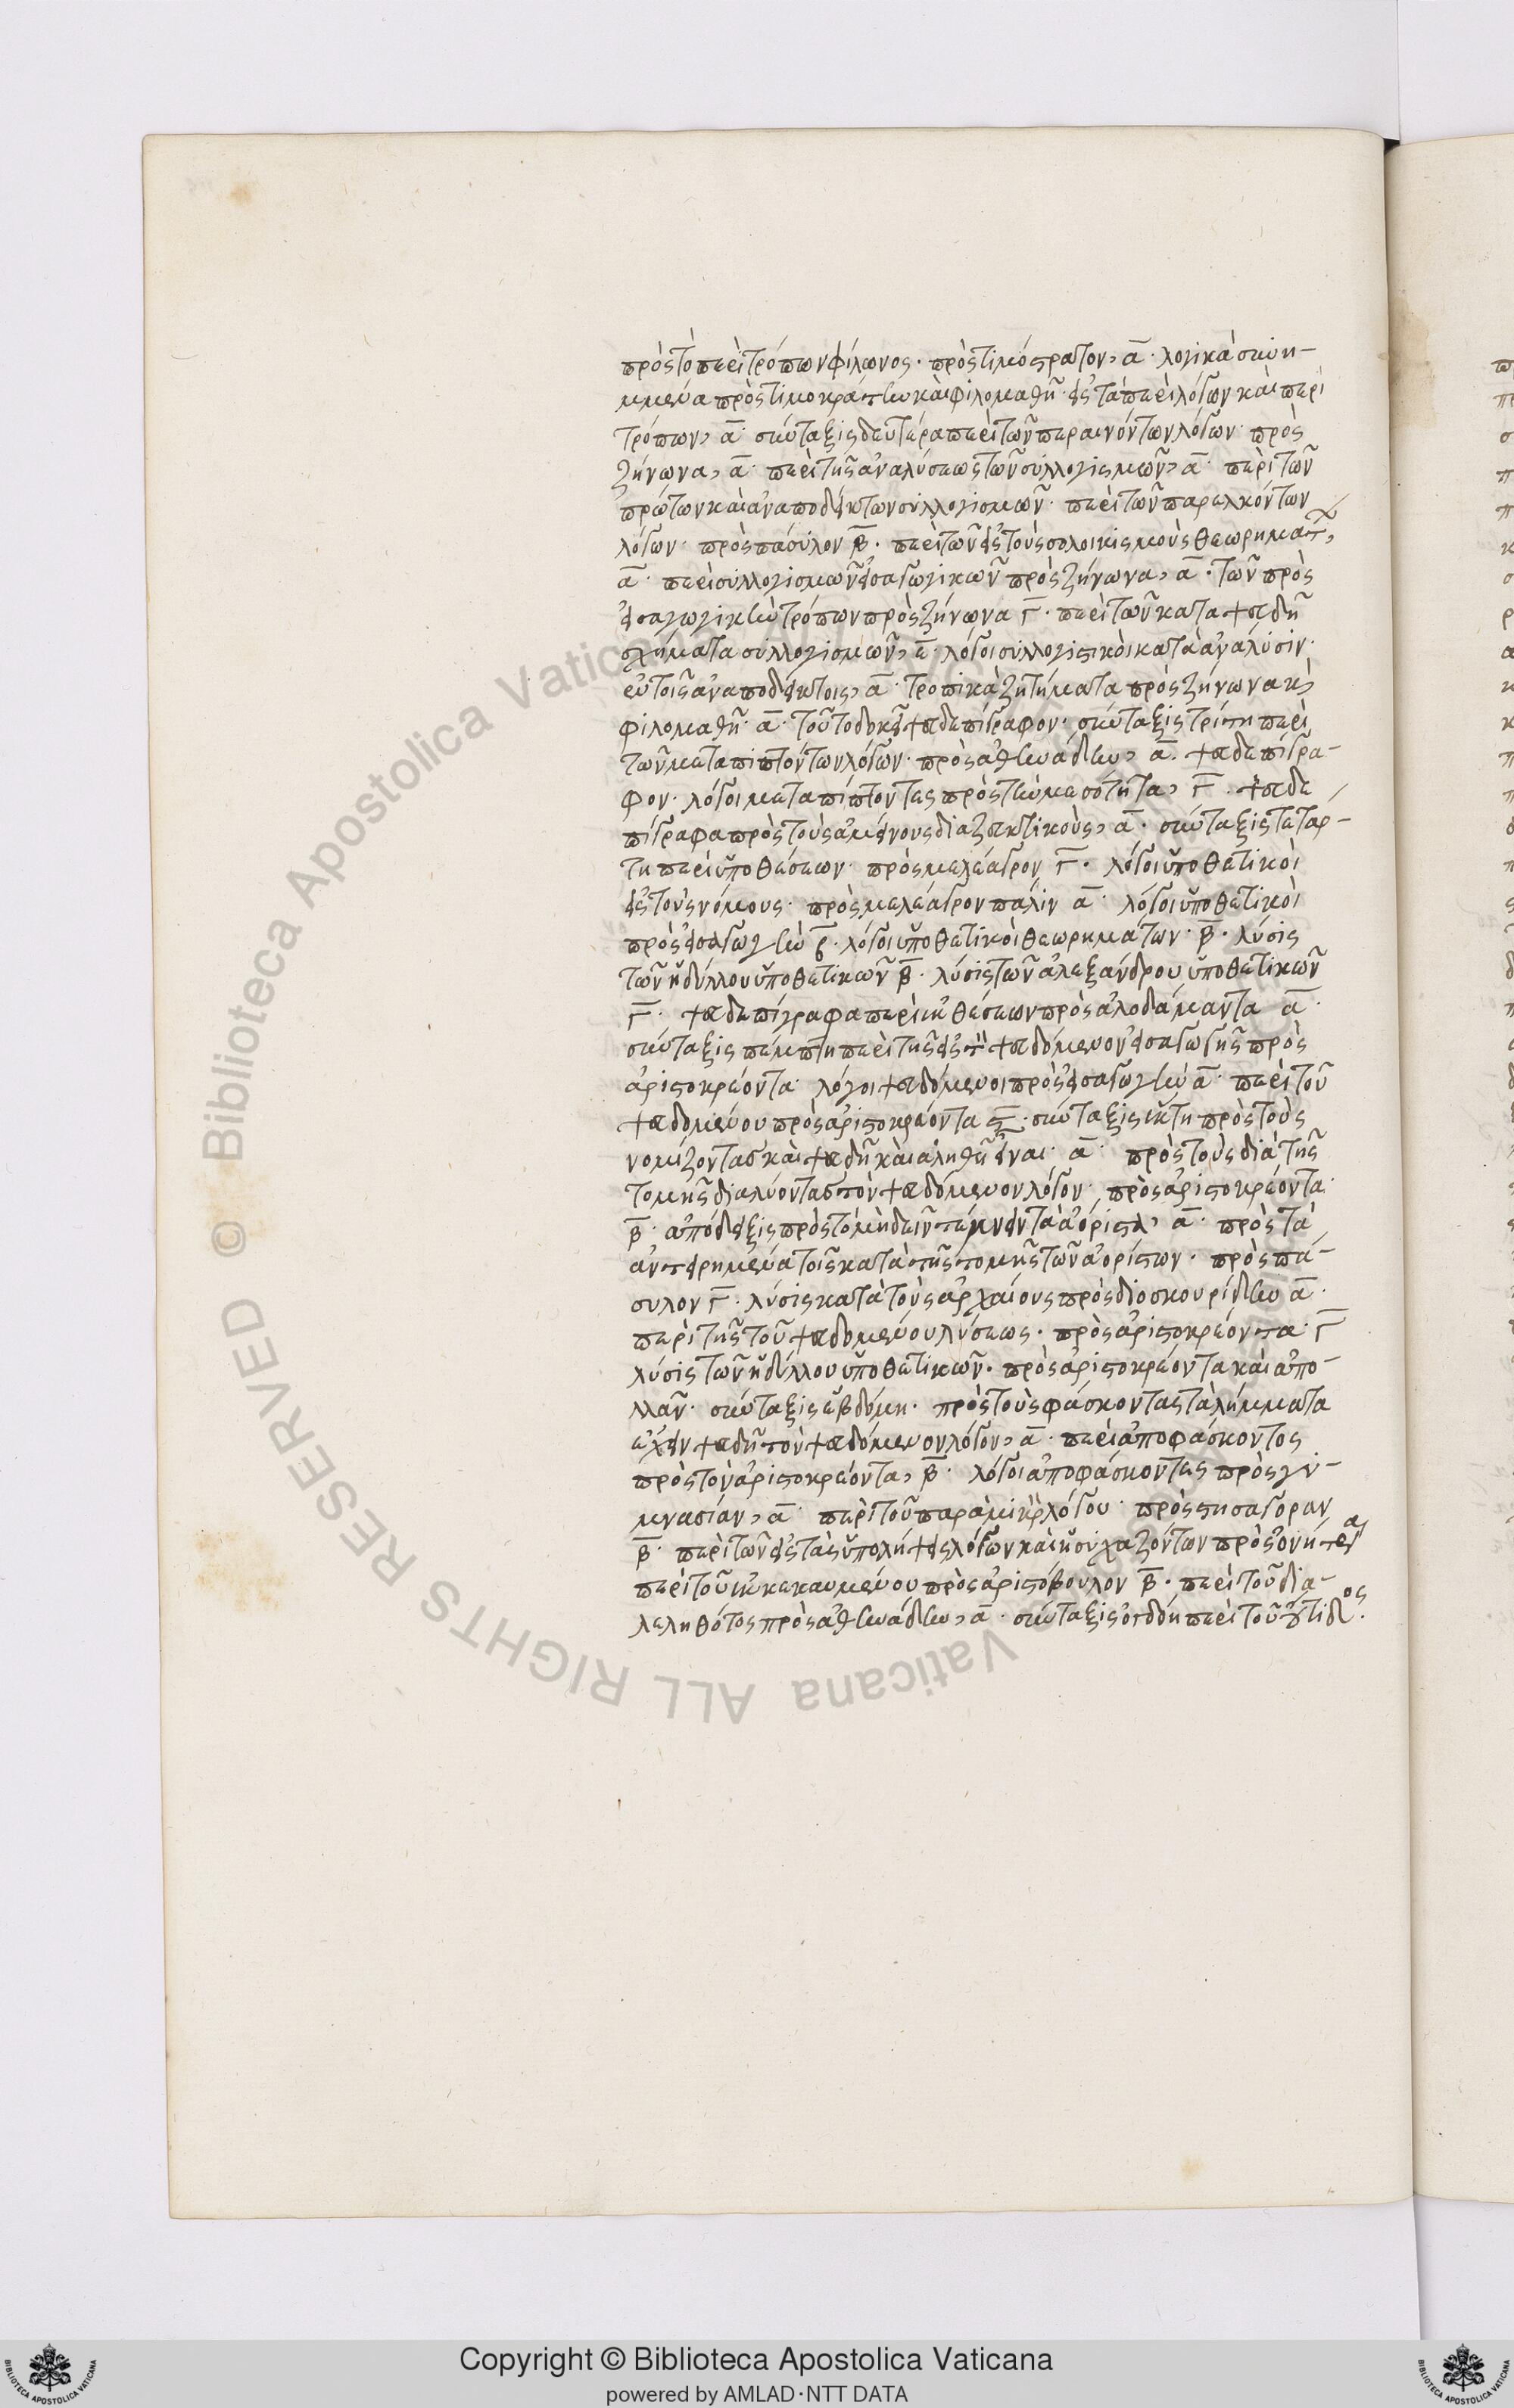 πρὸς τὸ περὶ τρόπων φίλωνος· πρὸς τιμόστρατον, α̅· λογικὰ συνη-
μμένα πρὸς τιμοκράτην καὶ φιλομαθῆ· εἰς τὰ περὶ λόγων καὶ περὶ
τρόπων, α̅· σύνταξις δευτέρα περὶ τῶν περαινόντων λόγων· πρὸς
ζήνωνα, α̅· περὶ τῆς ἀναλύσεως τῶν συλλογισμῶν, α̅· περὶ τῶν
πρώτων καὶ ἀναποδείκτων συλλογισμῶν· περὶ τῶν παρελκόντων
λόγων· πρὸς πάσυλον β̅· περὶ τῶν εἰς τοὺς σολοικισμοὺς θεωρημάτων,
α̅· περὶ συλλογισμῶν εἰσαγωγικῶν πρὸς ζήνωνα, α̅· τῶν πρὸς
εἰσαγωγικὴν τρόπων πρὸς ζήνωνα Γ̅· περὶ τῶν κατα ψευδῆ
σχήματα συλλογισμῶν, ε̅· λόγοι συλλογιστικοὶ κατὰ ἀνάλυσιν·
ἐν τοῖς ἀναποδείκτοις, α̅· τροπικὰ ζητήματα πρὸς ζήνωνα κ,
φιλομαθῆ· α̅· τοῦτο δοκεῖ ψευδεπίγραφον· σύνταξις τρίτη περὶ
τῶν μεταπιπτόντων λόγων· πρὸς ἀθηνάδην, α̅. ψευδεπίγρα-
φον· λόγοι μεταπίπτοντες πρὸς τὴν μεσότητα, Γ̅· ψευδε
πίγραφα πρὸς τοὺς ἀμείνους διαζευκτικοὺς, α̅· σύνταξις τετάρ-
τη περὶ ὑποθέσεων· πρὸς μελέαγρον Γ̅· λόγοι ὑποθετικοὶ
εἰς τοὺς νόμους· πρὸς μελέαγρον πάλιν α̅· λόγοι ὑποθετικοὶ
πρὸς εἰσαγωγὴν β̅· λόγοι ὑποθετικοὶ θεωρημάτων· β̅· λύσις
τῶν ἡδύλλου ὑποθετικῶν β̅· λύσις τῶν ἀλεξάνδρου ὑποθετικῶν
Γ̅· ψευδεπίγραφα περὶ ἐκθέσεων πρὸς αλοδάμαντα α̅·
σύνταξις πέμπτη περὶ τῆς εἰς τὸν ψευδόμενον εἰσαγωγῆς πρὸς
ἀριστοκρέοντα· λόγοι ψευδόμενοι πρὸς εἰσαγωγὴν α̅· περὶ τοῦ
ψευδομένου πρὸς ἀριστοκρέοντα ς̅· σύνταξις ἕκτη πρὸς τοὺς
νομίζοντας καὶ ψευδῆ καὶ ἀληθῆ εἶναι· α̅· πρὸς τοὺς διὰ τῆς
τομῆς διαλύοντας τὸν ψευδόμενον λόγον· πρὸς ἀριστοκρέοντα·
β̅· ἀπόδειξις πρὸς τὸ μὴ δεῖν τέμνειν τὰ ἀόριστα, α̅· πρὸς τὰ
ἀντειρημένα τοῖς κατὰ τῆς τομῆς τῶν ἀορίστων· πρὸς πά-
συλον Γ̅· λύσις κατὰ τοὺς ἀρχαίους πρὸς διοσκουρίδην α̅·
περὶ τῆς τοῦ ψευδομένου λύσεως· πρὸς ἀριστοκρέοντα· Γ̅
λύσις τῶν ἡδύλλου ὑποθετικῶν· πρὸς ἀριστοκρέοντα καὶ ἀπο-
λλαν· σύνταξις ἑβδόμη· πρὸς τοὺς φάσκοντας τὰ λήμματα
ἔχειν ψευδῆ τὸν ψευδόμενον λόγον, α̅· περὶ ἀποφάσκοντος
πρὸς τὸν ἀριστοκρέοντα, β̅· λόγοι ἀποφάσκοντες πρὸς γυ-
μνασίαν, α̅· περὶ τοῦ παρὰ μικρὸν λόγου· πρὸς στησαγόραν
β̅· περὶ τῶν εἰς τὰς ὑπολήψεις λόγων καὶ ἡσυχαζόντων πρὸς ὀνήτορα
περὶ τοῦ ἐγκεκαυμένου πρὸς ἀριστόβουλον β̅· περὶ τοῦ δια-
λεληθότος πρὸς ἀθηνάδην, α̅· σύνταξις ὀγδόη περὶ τοῦ οὔτιδος.
Copyright © Biblioteca Apostolica Vaticana
powered by AMLAD·NTT DATA